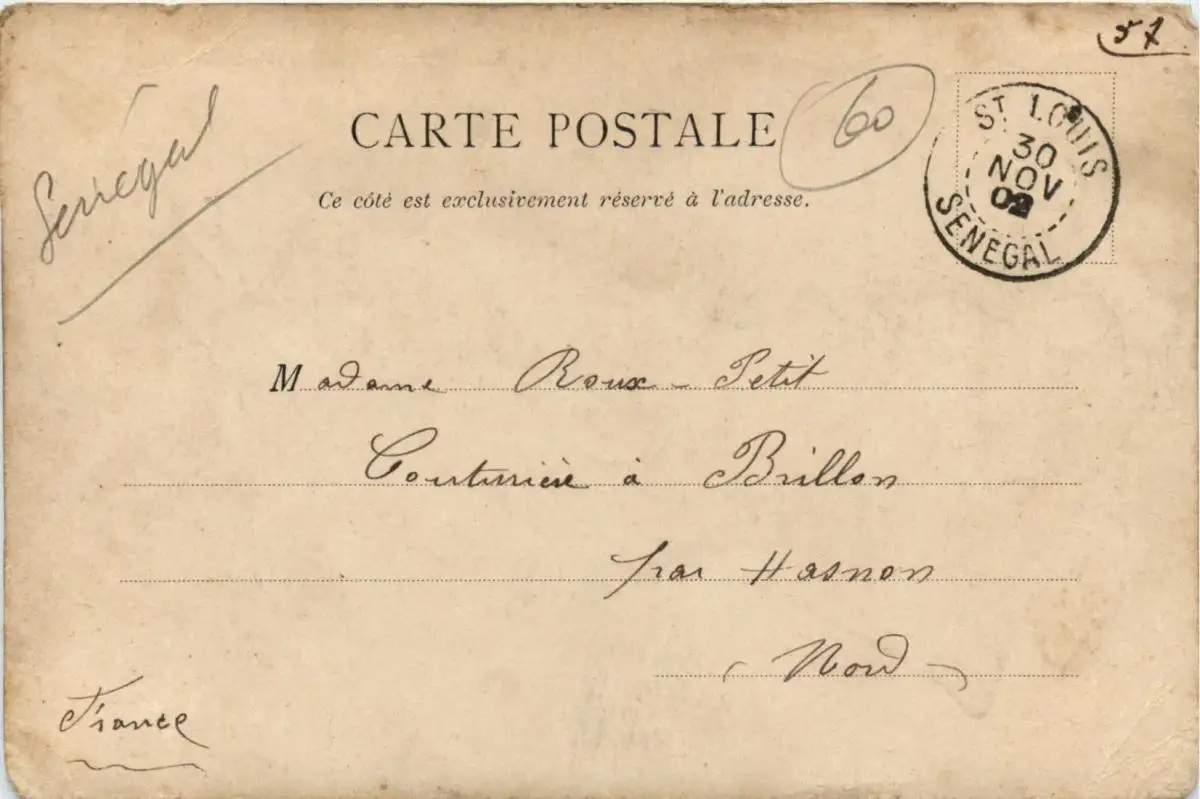 Sénégal
CARTE POSTALE
60
Ce côté est exclusivement réservé à l'adresse.
ST LOUIS
30
NOV
02
SENEGAL
Madame Roux-Petit
Couturière à Brillon
par Hasnon
(Nord)
France